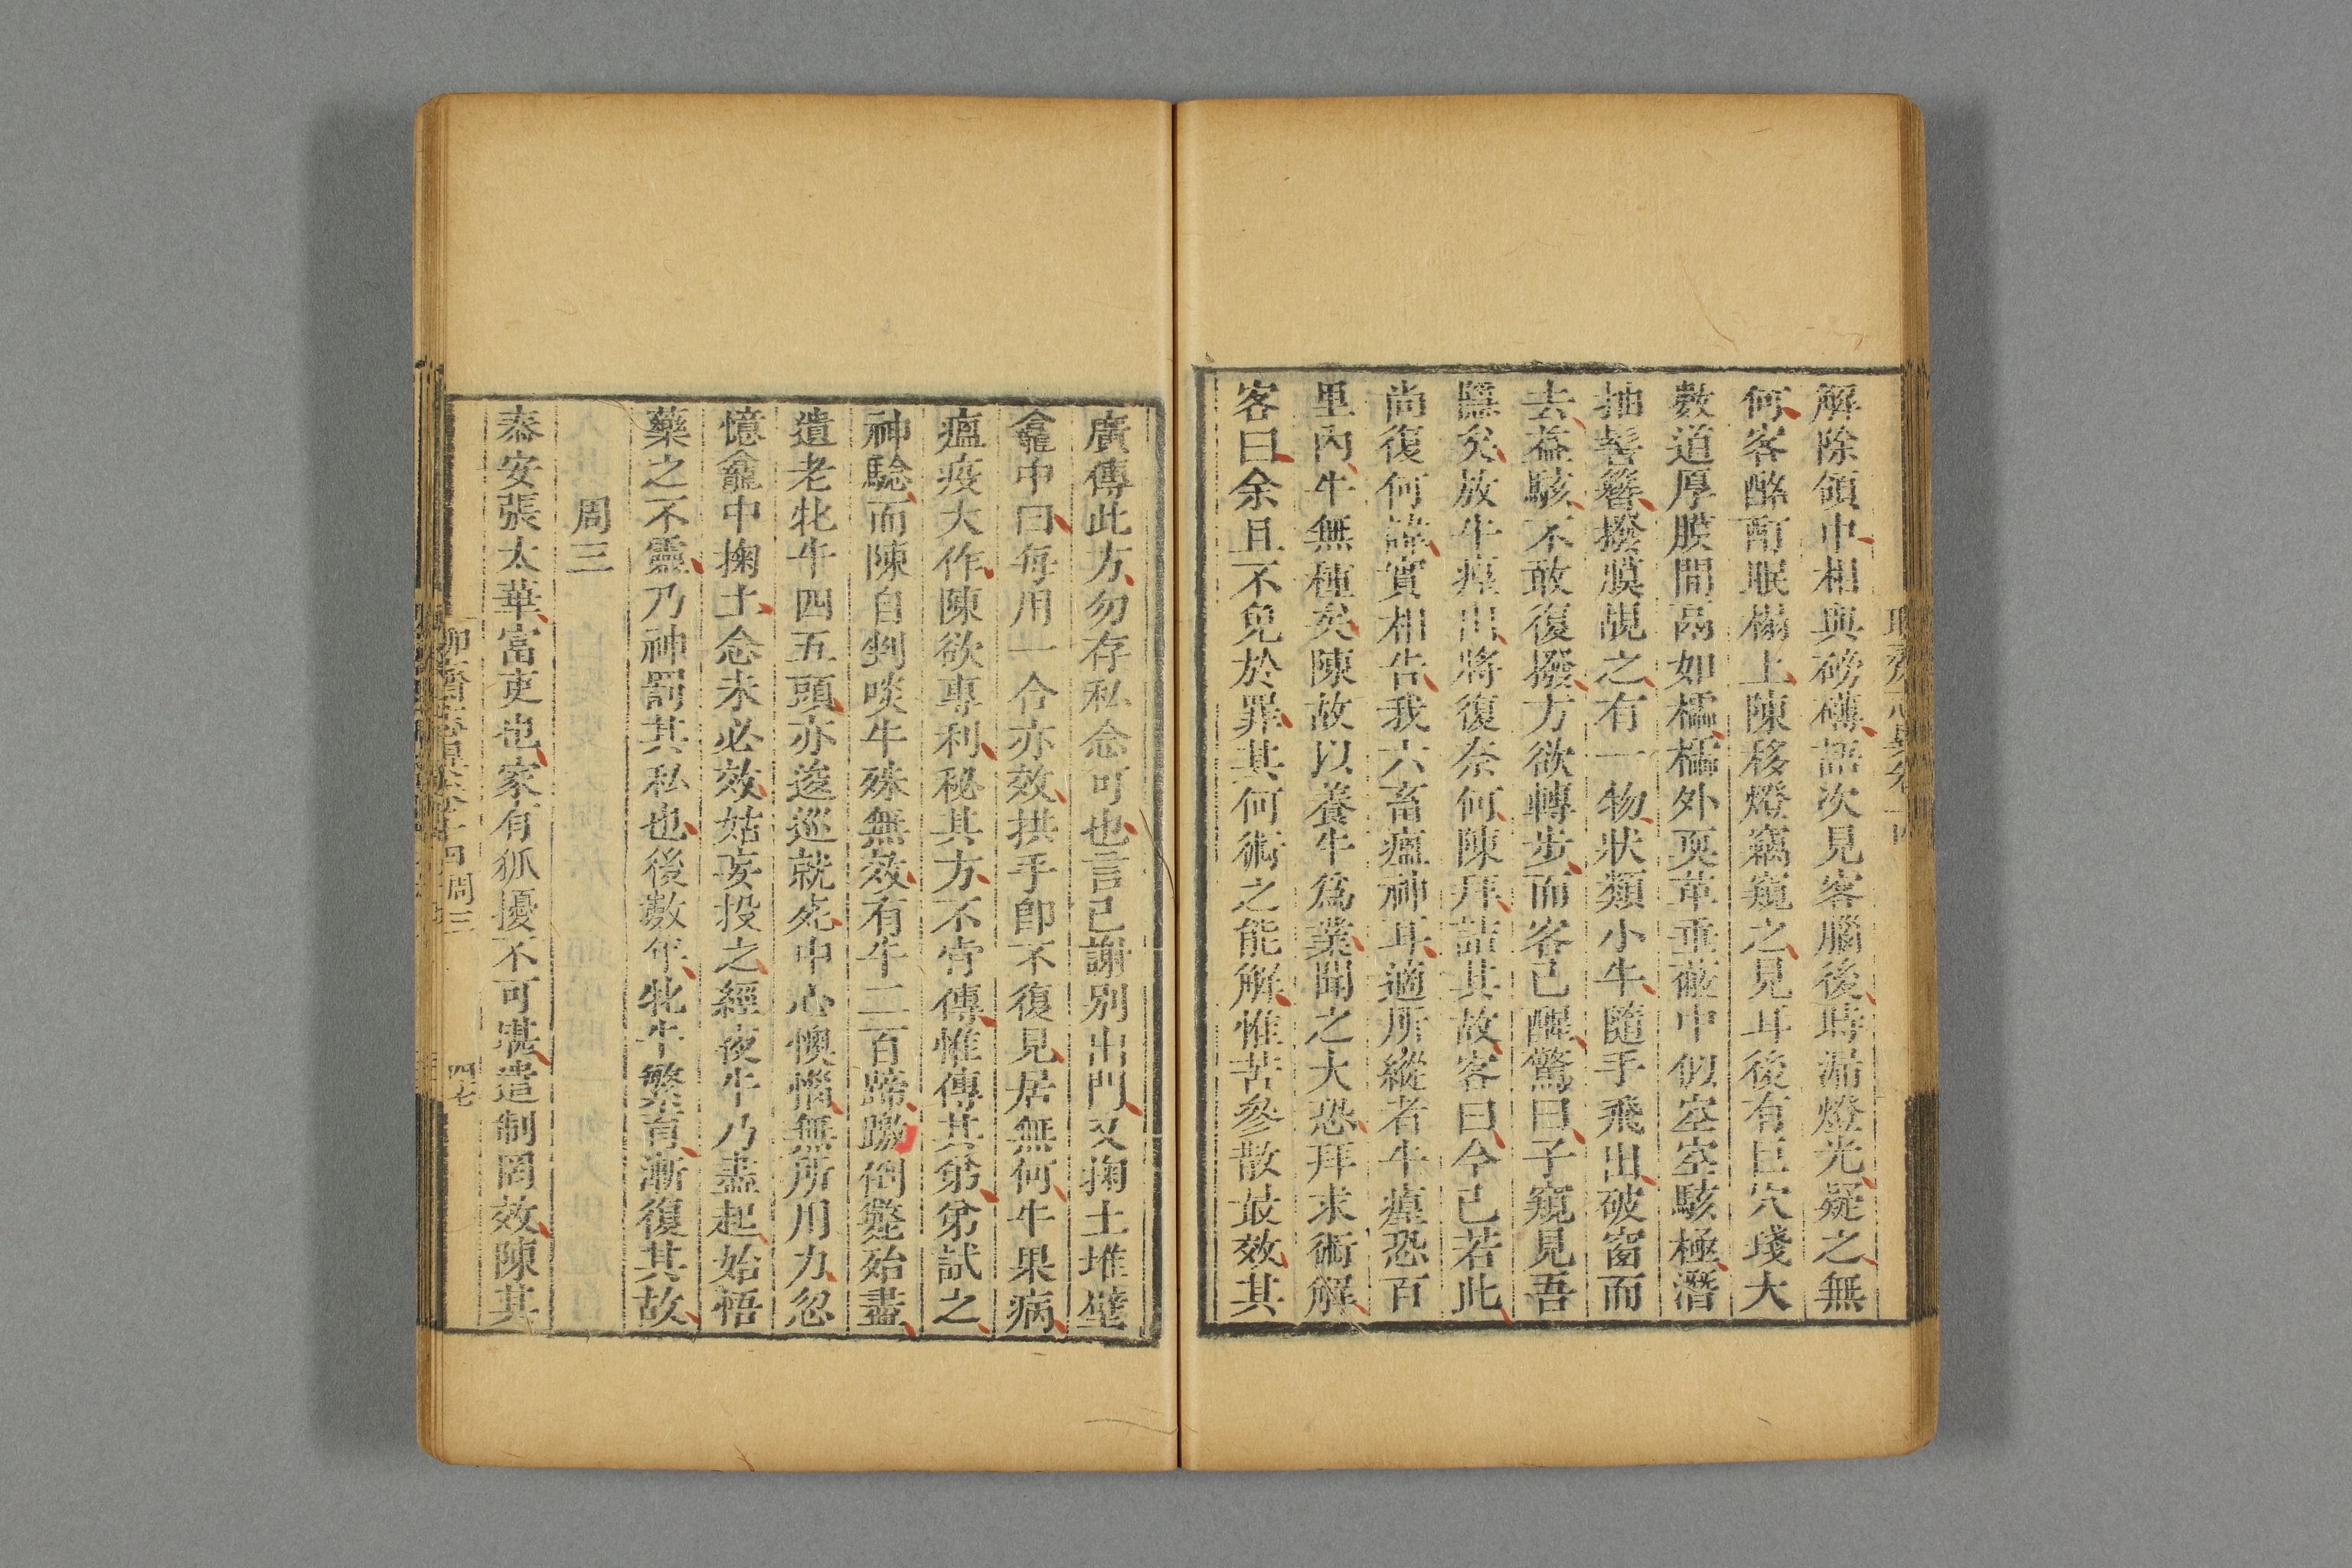 解除領中相與磅礴語次見客腦後時漏燈光疑之無
何客酩酊眠榻上陳移燈竊窺之見耳後有巨穴琖大
數道厚膜間鬲如櫺櫺外耎革垂蔽中似空空駭極潛
抽髻簪撥膜覘之有一物狀類小牛隨手飛出破窗而
去益駭不敢復撥方欲轉步而客已醒驚曰子窺見吾
隱矣放牛㾮出將復奈何陳拜詰其故客曰今已若此
尚復何諱實相告我六畜瘟神耳適所縱者牛㾮恐百
里內牛無種矣陳故以養牛爲業聞之大恐拜求術解
客曰余且不免於罪其何術之能解惟苦參散最效其
廣傳此方勿存私念可也言已謝別出門又掬土堆壁
龕中曰每用一合亦效拱手卽不復見居無何牛果病
瘟疫大作陳欲專利秘其方不肯傳惟傳其弟弟試之
神騐而陳自剉啖牛殊無效有牛二百蹄躈倒斃殆盡
遺老牝牛四五頭亦逡巡就死中心懊惱無所用力忽
憶龕中掬土念未必效姑妄投之經夜牛乃盡起始悟
藥之不靈乃神罰其私也後數年牝牛繁育漸復其故
周三
泰安張太華富吏也家有狐擾不可堪遣制罔效陳其
周三
四七